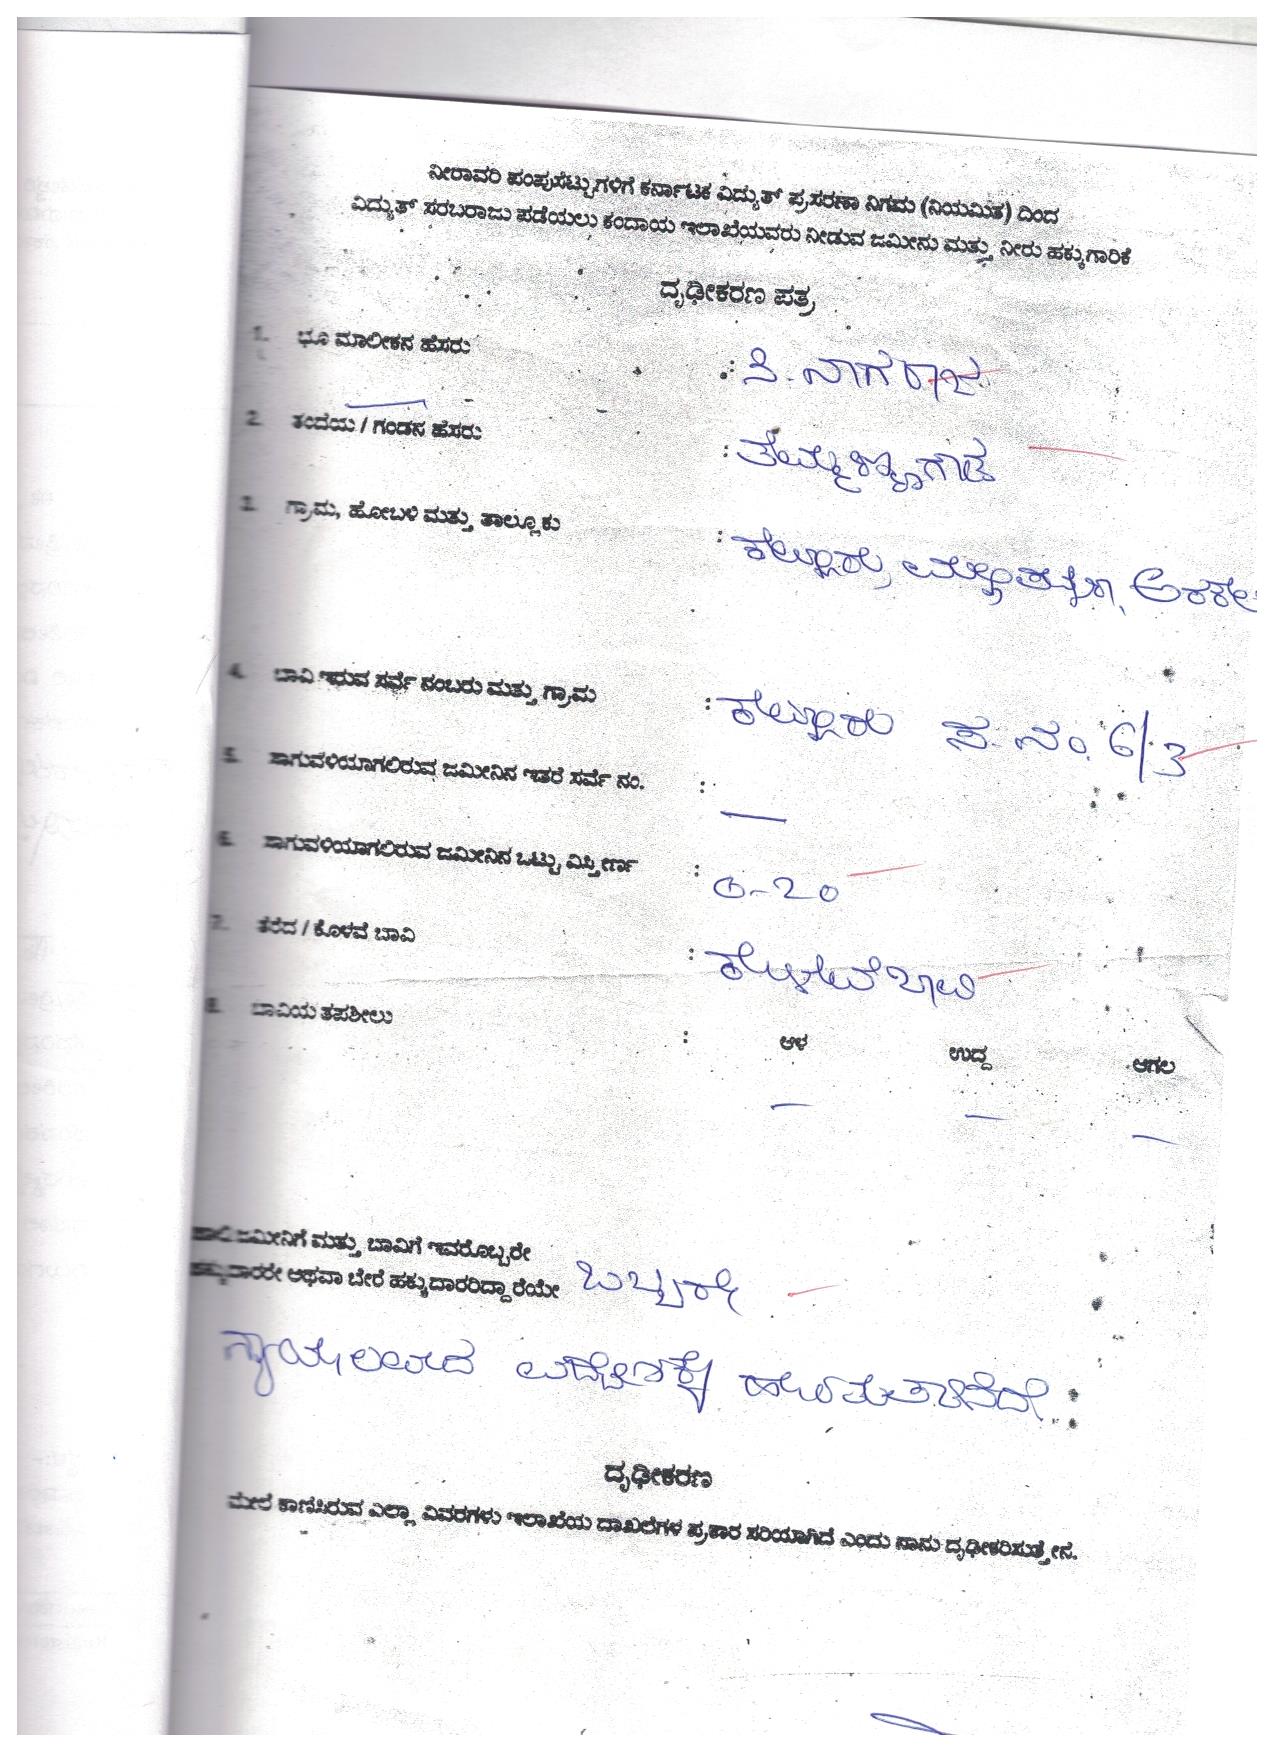 ನೀರಾವರಿ ಪಂಪುಸೆಟ್ಟುಗಳಿಗೆ ಕರ್ನಾಟಕ ವಿದ್ಯುತ್ ಪ್ರಸರಣಾ ನಿಗಮ (ನಿಯಮಿತ) ದಿಂದ
ವಿದ್ಯುತ್ ಸರಬರಾಜು ಪಡೆಯಲು ಕಂದಾಯ ಇಲಾಖೆಯವರು ನೀಡುವ ಜಮೀನು ಮತ್ತು ನೀರು ಹಕ್ಕುಗಾರಿಕೆ
ದೃಢೀಕರಣ ಪತ್ರ
1. ಭೂ ಮಾಲೀಕನ ಹೆಸರು : ಸಿ. ನಾಗರಾಜ
2. ತಂದೆಯ / ಗಂಡನ ಹೆಸರು :
3. ಗ್ರಾಮ, ಹೋಬಳಿ ಮತ್ತು ತಾಲ್ಲೂಕು :
4. ಬಾವಿ ಇರುವ ಸರ್ವೆ ನಂಬರು ಮತ್ತು ಗ್ರಾಮ : ಸ. ನಂ. 6/3
5. ಸಾಗುವಳಿಯಾಗಲಿರುವ ಜಮೀನಿನ ಇತರೆ ಸರ್ವೆ ನಂ. : —
6. ಸಾಗುವಳಿಯಾಗಲಿರುವ ಜಮೀನಿನ ಒಟ್ಟು ವಿಸ್ತೀರ್ಣ : 0-20
7. ತೆರೆದ / ಕೊಳವೆ ಬಾವಿ : ಕೊಳವೆ ಬಾವಿ
8. ಬಾವಿಯ ತಪಶೀಲು : ಆಳ ಉದ್ದ ಅಗಲ
— — —
ಜಮೀನಿಗೆ ಮತ್ತು ಬಾವಿಗೆ ಇವರೊಬ್ಬರೇ
ಹಕ್ಕುದಾರರೇ ಅಥವಾ ಬೇರೆ ಹಕ್ಕುದಾರರಿದ್ದಾರೆಯೇ ಒಬ್ಬರೇ
ದೃಢೀಕರಣ
ಮೇಲೆ ಕಾಣಿಸಿರುವ ಎಲ್ಲಾ ವಿವರಗಳು ಇಲಾಖೆಯ ದಾಖಲೆಗಳ ಪ್ರಕಾರ ಸರಿಯಾಗಿದೆ ಎಂದು ನಾನು ದೃಢೀಕರಿಸುತ್ತೇನೆ.